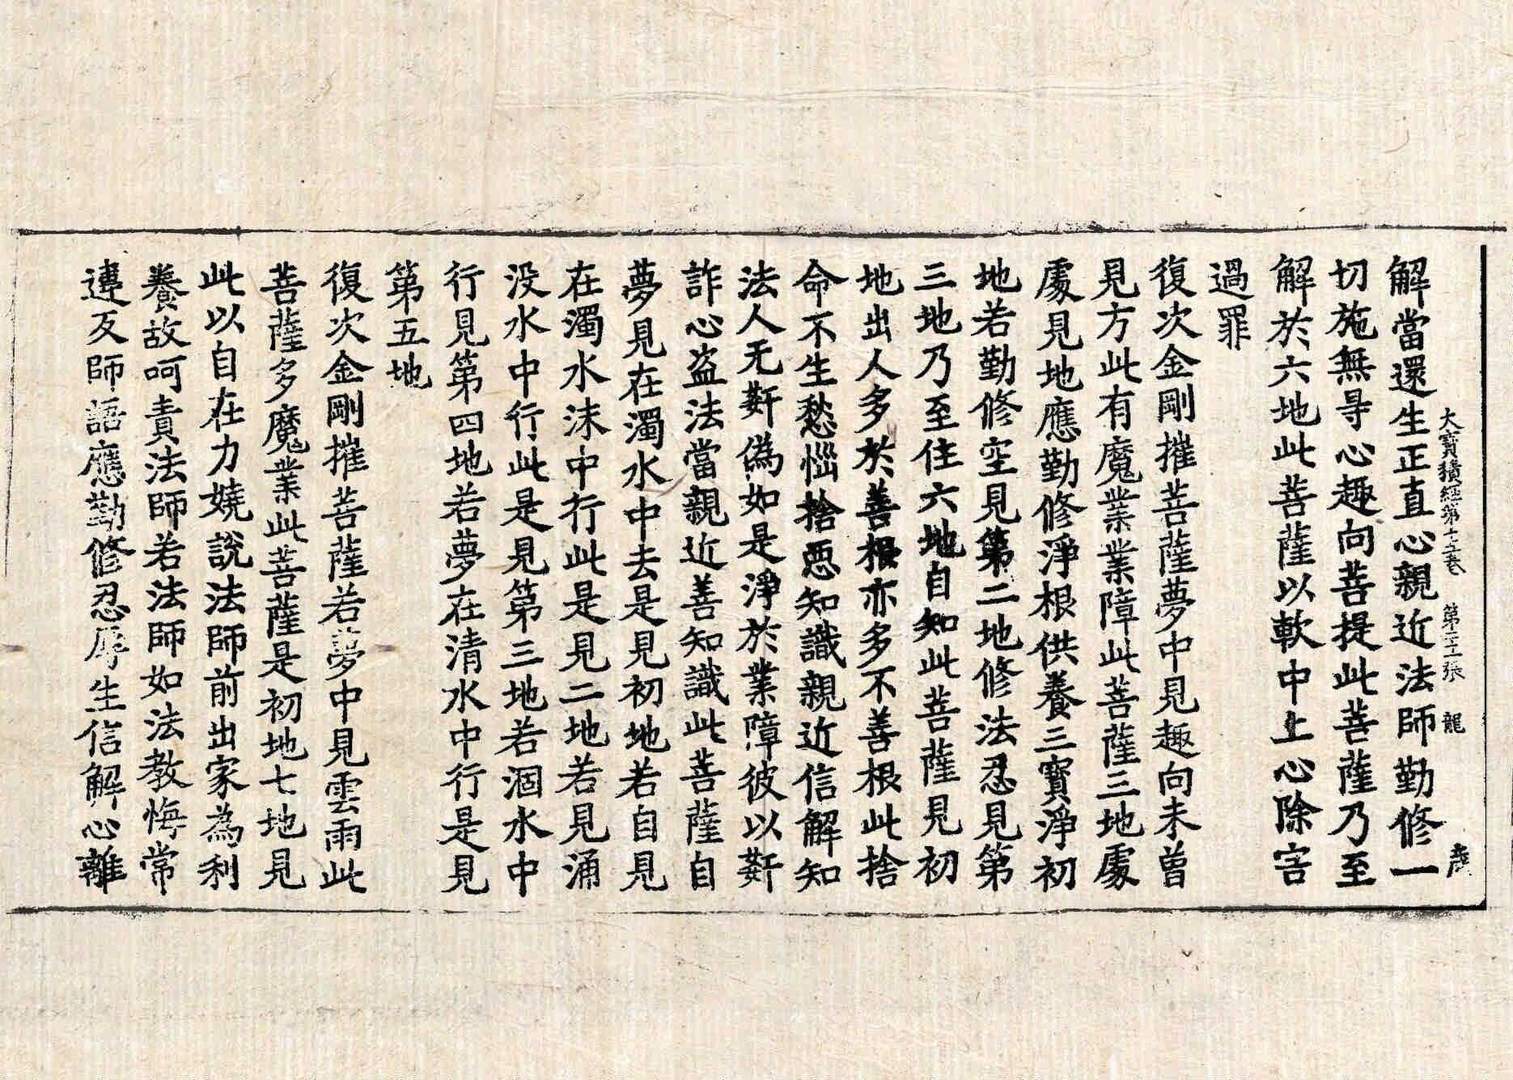 大寶積經第十五卷 張 龍
解當還生正直心親近法師勤修一
切施無㝵心趣向菩提此菩薩乃至
解於六地此菩薩以軟中上心除害
過罪
復次金剛摧菩薩夢中見趣向未曾
見方此有魔業業障此菩薩三地處
處見地應勤修淨根供養三寶淨初
地若勤修空見第二地修法忍見第
三地乃至住六地自知此菩薩見初
地出人多於善根亦多不善根此捨
命不生愁惱捨惡知識親近信解知
法人无姧偽如是淨於業障彼以姧
詐心盜法當親近善知識此菩薩自
夢見在濁水中去是見初地若自見
在濁水沫中行此是見二地若見涌
没水中行此是見第三地若涸水中
行見第四地若夢在清水中行是見
第五地
復次金剛摧菩薩若夢中見雲雨此
菩薩多魔業此菩薩是初地七地見
此以自在力嬈說法師前出家為利
養故呵責法師若法師如法教悔常
違反師語應勤修忍辱生信解心離